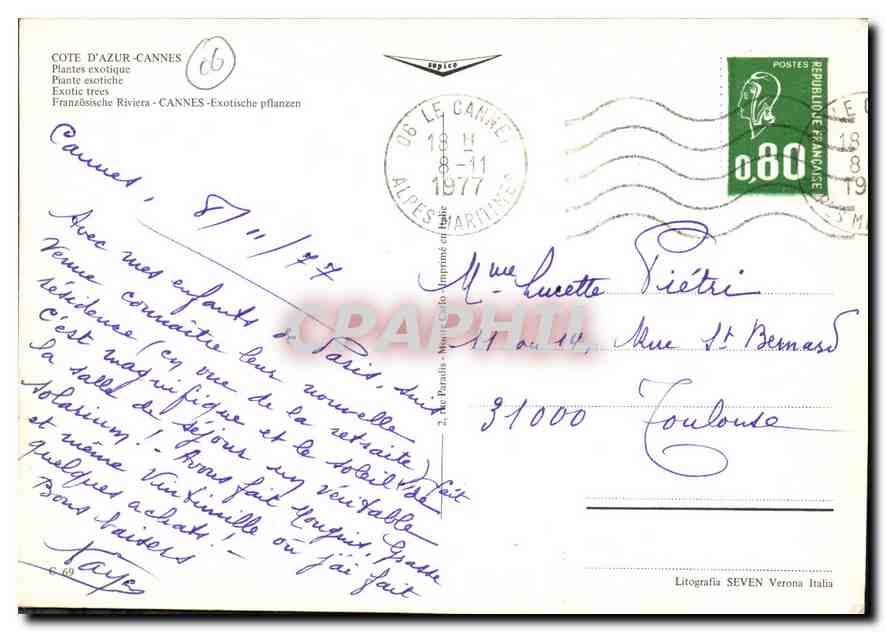 COTE D'AZUR -CANNES
Plantes exotique
Piante esotiche
Exotic trees
Französische Riviera - CANNES -Exotische pflanzen
06
sopico
06 LE CANNET
18 H
8-11
1977
ALPES MARITIMES
POSTES
REPUBLIQUE FRANÇAISE
0,80
LE C
18
8
19
ES M
Cannes, 8/11/77
Avec mes enfants de Paris, suis
venue connaître leur nouvelle
résidence (en vue de la retraite)
c'est magnifique et le soleil fait
la salle de séjour un véritable
solarium! - Avons fait Mougins, Grasse
et même Vintimille où j'ai fait
quelques achats! -
Bons baisers
Mme Lucette Piétri
11 ou 14, Rue St Bernard
31000 Toulouse
2, rue Paradis - Monte Carlo - Imprimé en Italie
CPAPHIL
C 69
Litografia SEVEN Verona Italia